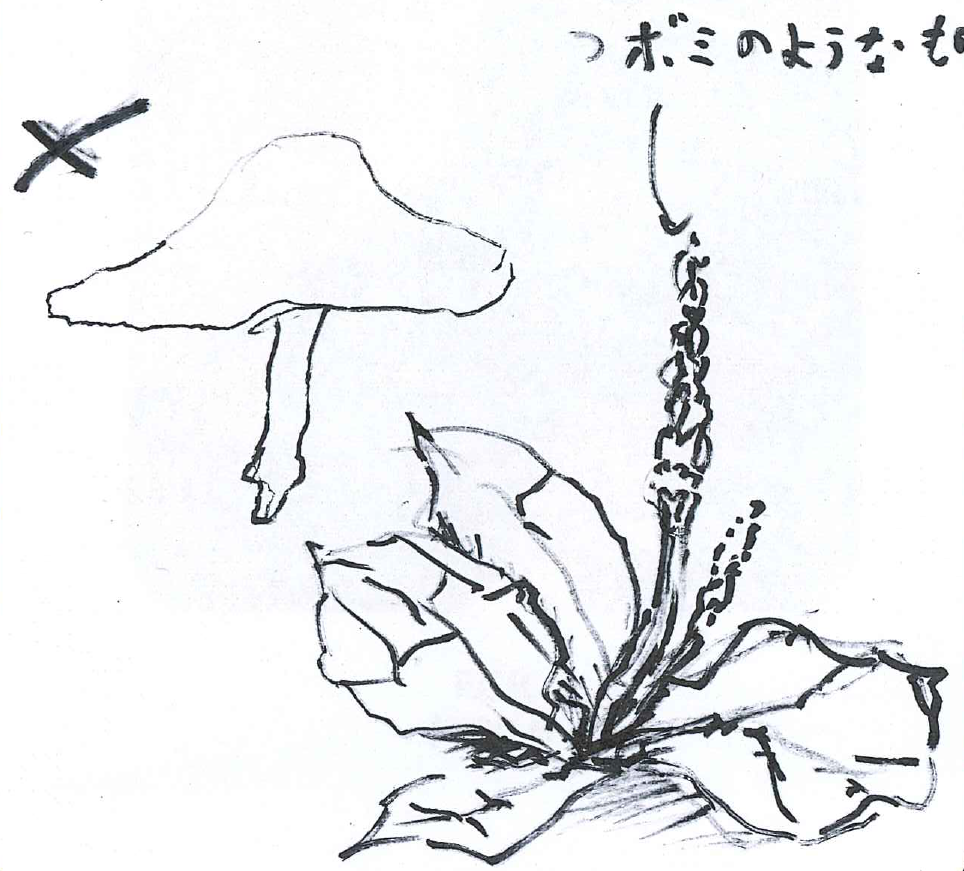 つボミのようなも